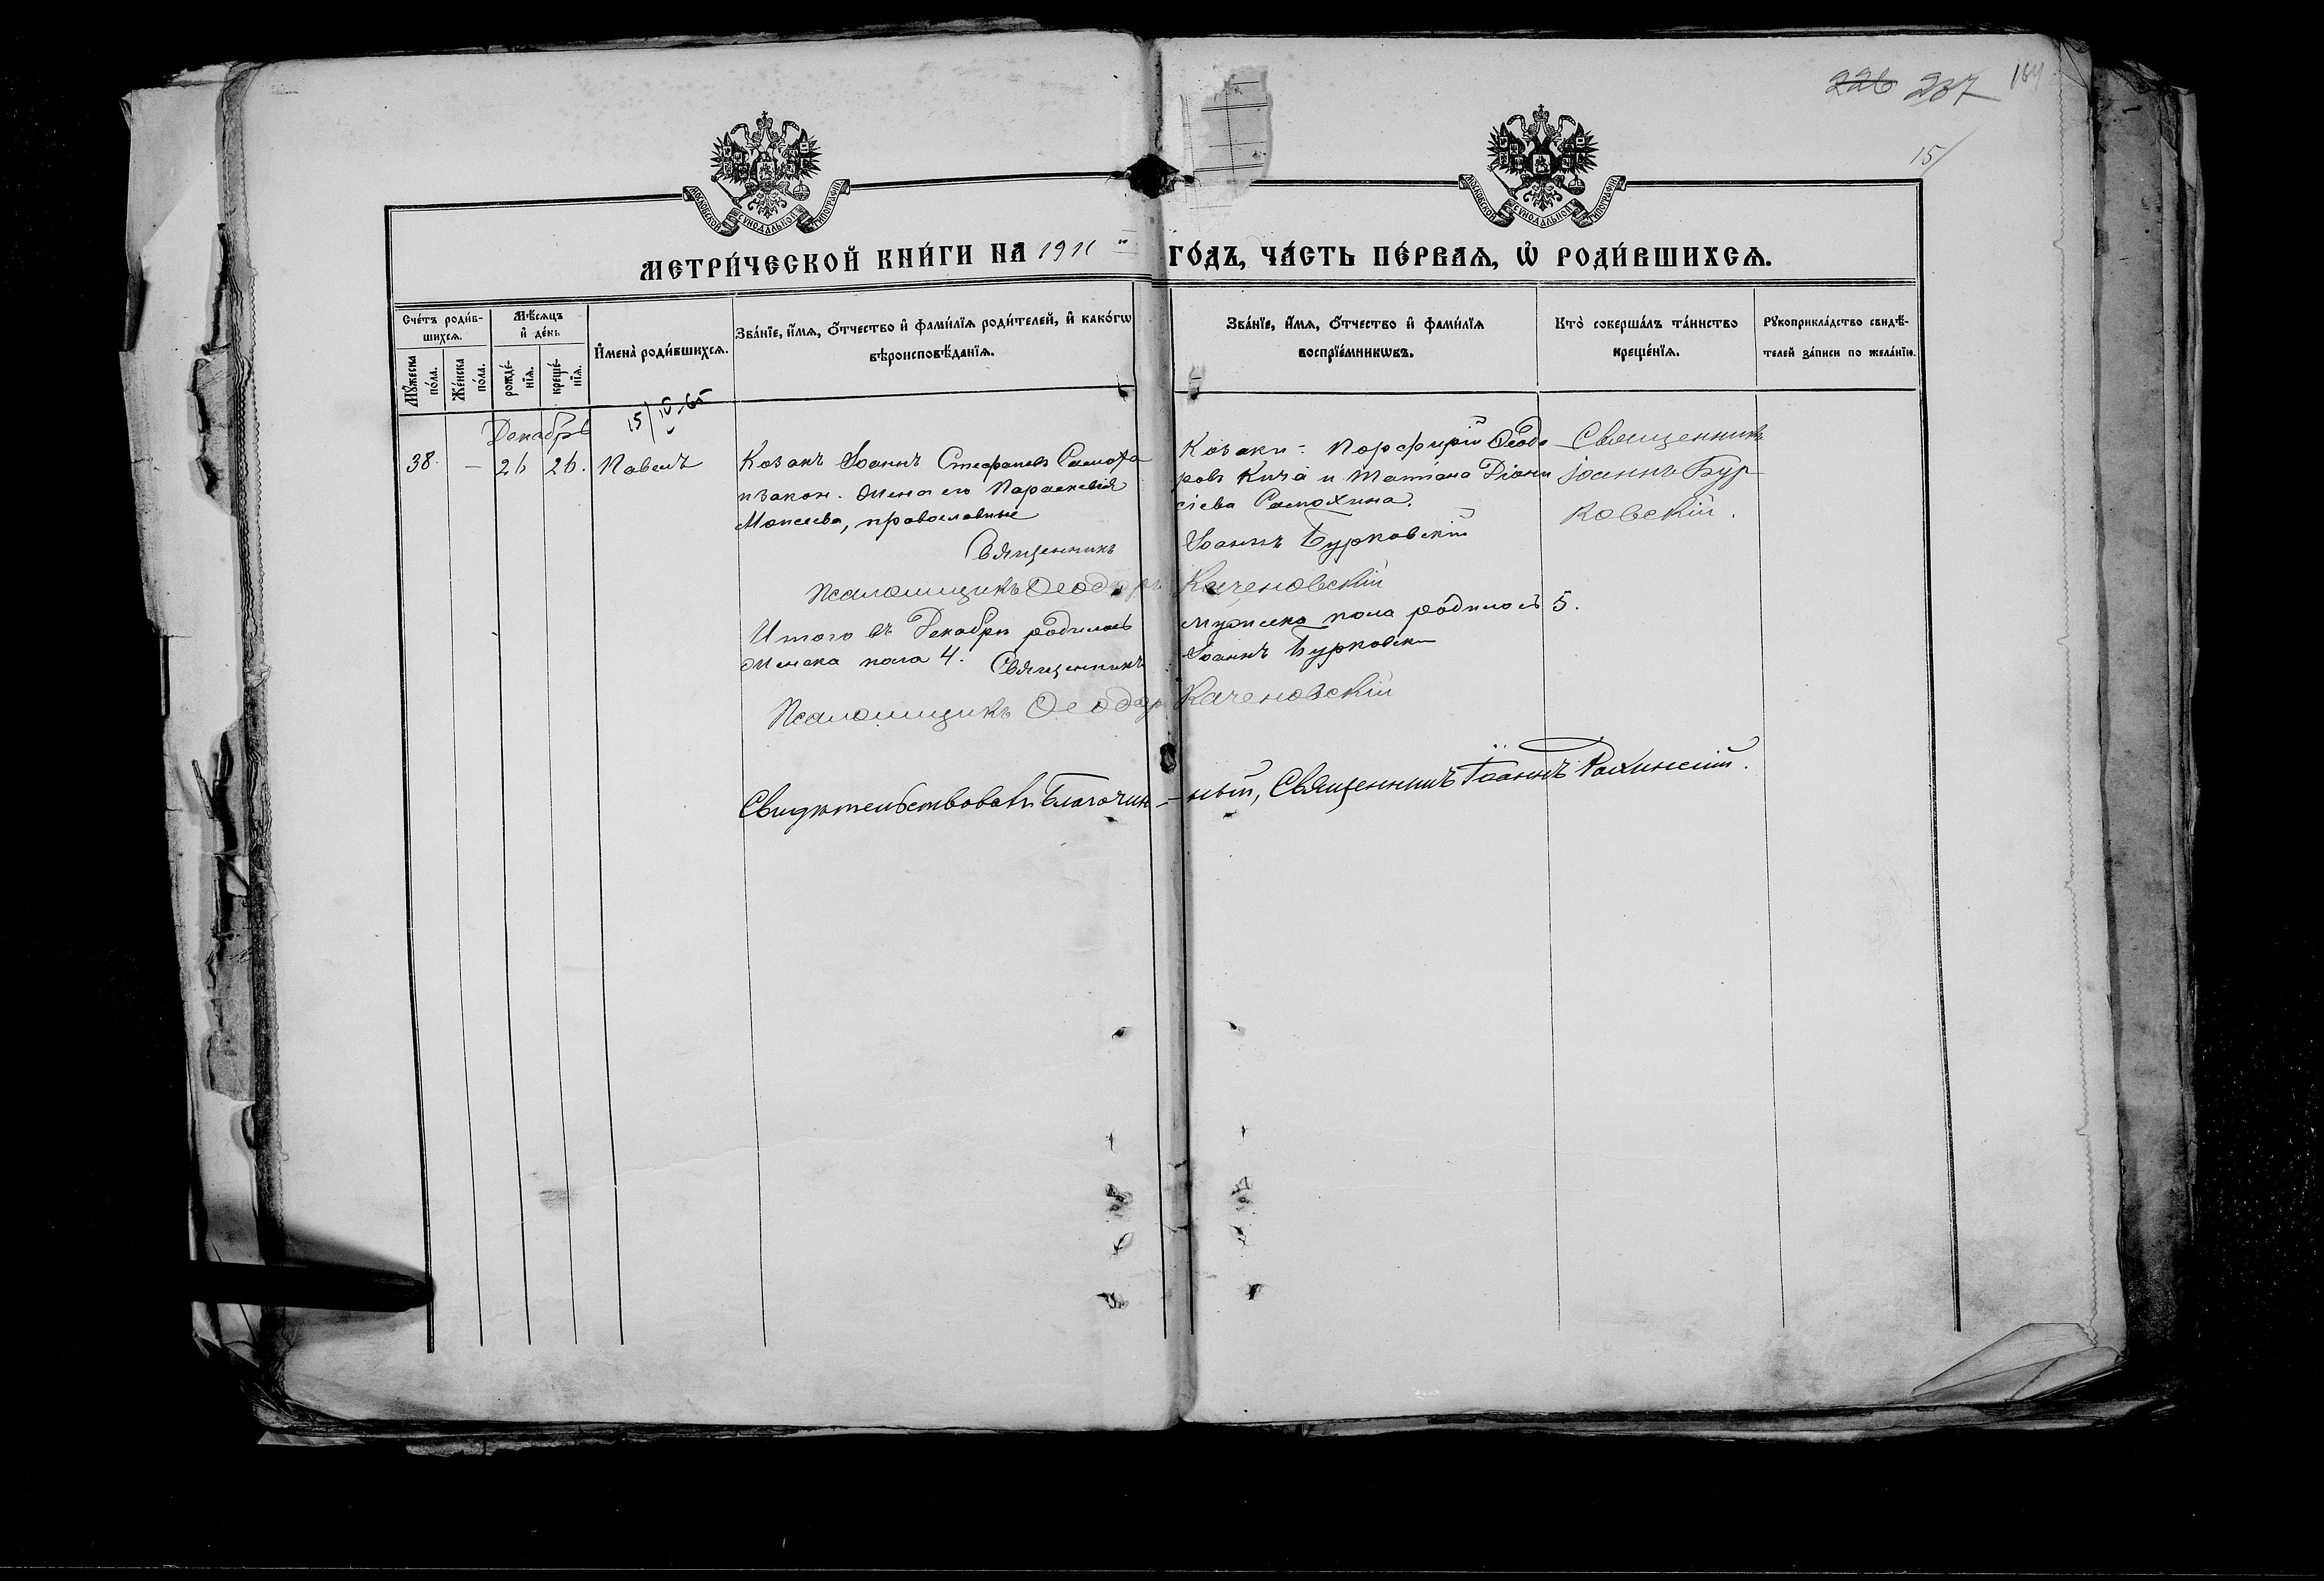 226 237 164
15
МОСКОВСКОЙ СѴНОДАЛЬНОЙ ТИПОГРАФІИ
МОСКОВСКОЙ СѴНОДАЛЬНОЙ ТИПОГРАФІИ
МЕТРИ́ЧЕСКОЙ КНИ́ГИ НА 1911 ГО́ДЪ, ЧА́СТЬ ПЕ́РВАѦ, Ѡ҆ РОДИ́ВШИХСѦ.
Сче́тъ роди́в-
шихсѧ.
Мꙋ́жеска по́ла.
Же́нска по́ла.
Мѣ́сѧцъ и҆ де́нь
рожде́-нїѧ.
креще́-нїѧ.
И҆мена̀ роди́вшихсѧ.
Зва́нїе, и҆́мѧ, ѻ҆́тчество и҆ фамѝлїѧ роди́телей, и҆ како́гѡ
вѣроисповѣ́данїѧ.
Зва́нїе, и҆́мѧ, ѻ҆́тчество и҆ фамѝлїѧ
воспрїе́мникѡвъ.
Кто̀ соверша́лъ та́инство
креще́нїѧ.
Рꙋкоприкла́дство свидѣ́-
телей за́писи по жела́нїю.
Декабрь
38. – 26 26. Павелъ
Козакъ Іоаннъ Стефановъ Самоха
и закон. жена его Параскевія
Моисеева, православные
Козаки: Порфирій Ѳеодо
ровъ Кича и Татіана Діони
сіева Самохина.
Священникъ
Іоаннъ Бур
ковскій.
Священникъ Іоаннъ Бурковскій
Псаломщикъ Ѳеодоръ Каченовскій
Итого въ Декабрѣ родилось мужеска пола родилось 5.
Женска пола 4. Священникъ Іоаннъ Бурковскій
Псаломщикъ Ѳеодоръ Каченовскій
Свидѣтельствовалъ Благочин-ный, Священникъ Іоаннъ